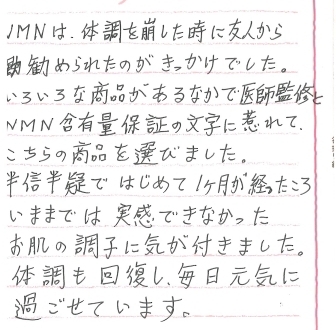 NMNは、体調を崩した時に友人から
勧められたのがきっかけでした。
いろいろな商品があるなかで医師監修と
NMN含有量保証の文字に惹れて、
こちらの商品を選びました。
半信半疑ではじめて1ヶ月が経ったころ
いままでは実感できなかった
お肌の調子に気が付きました。
体調も回復し、毎日元気に
過ごせています。